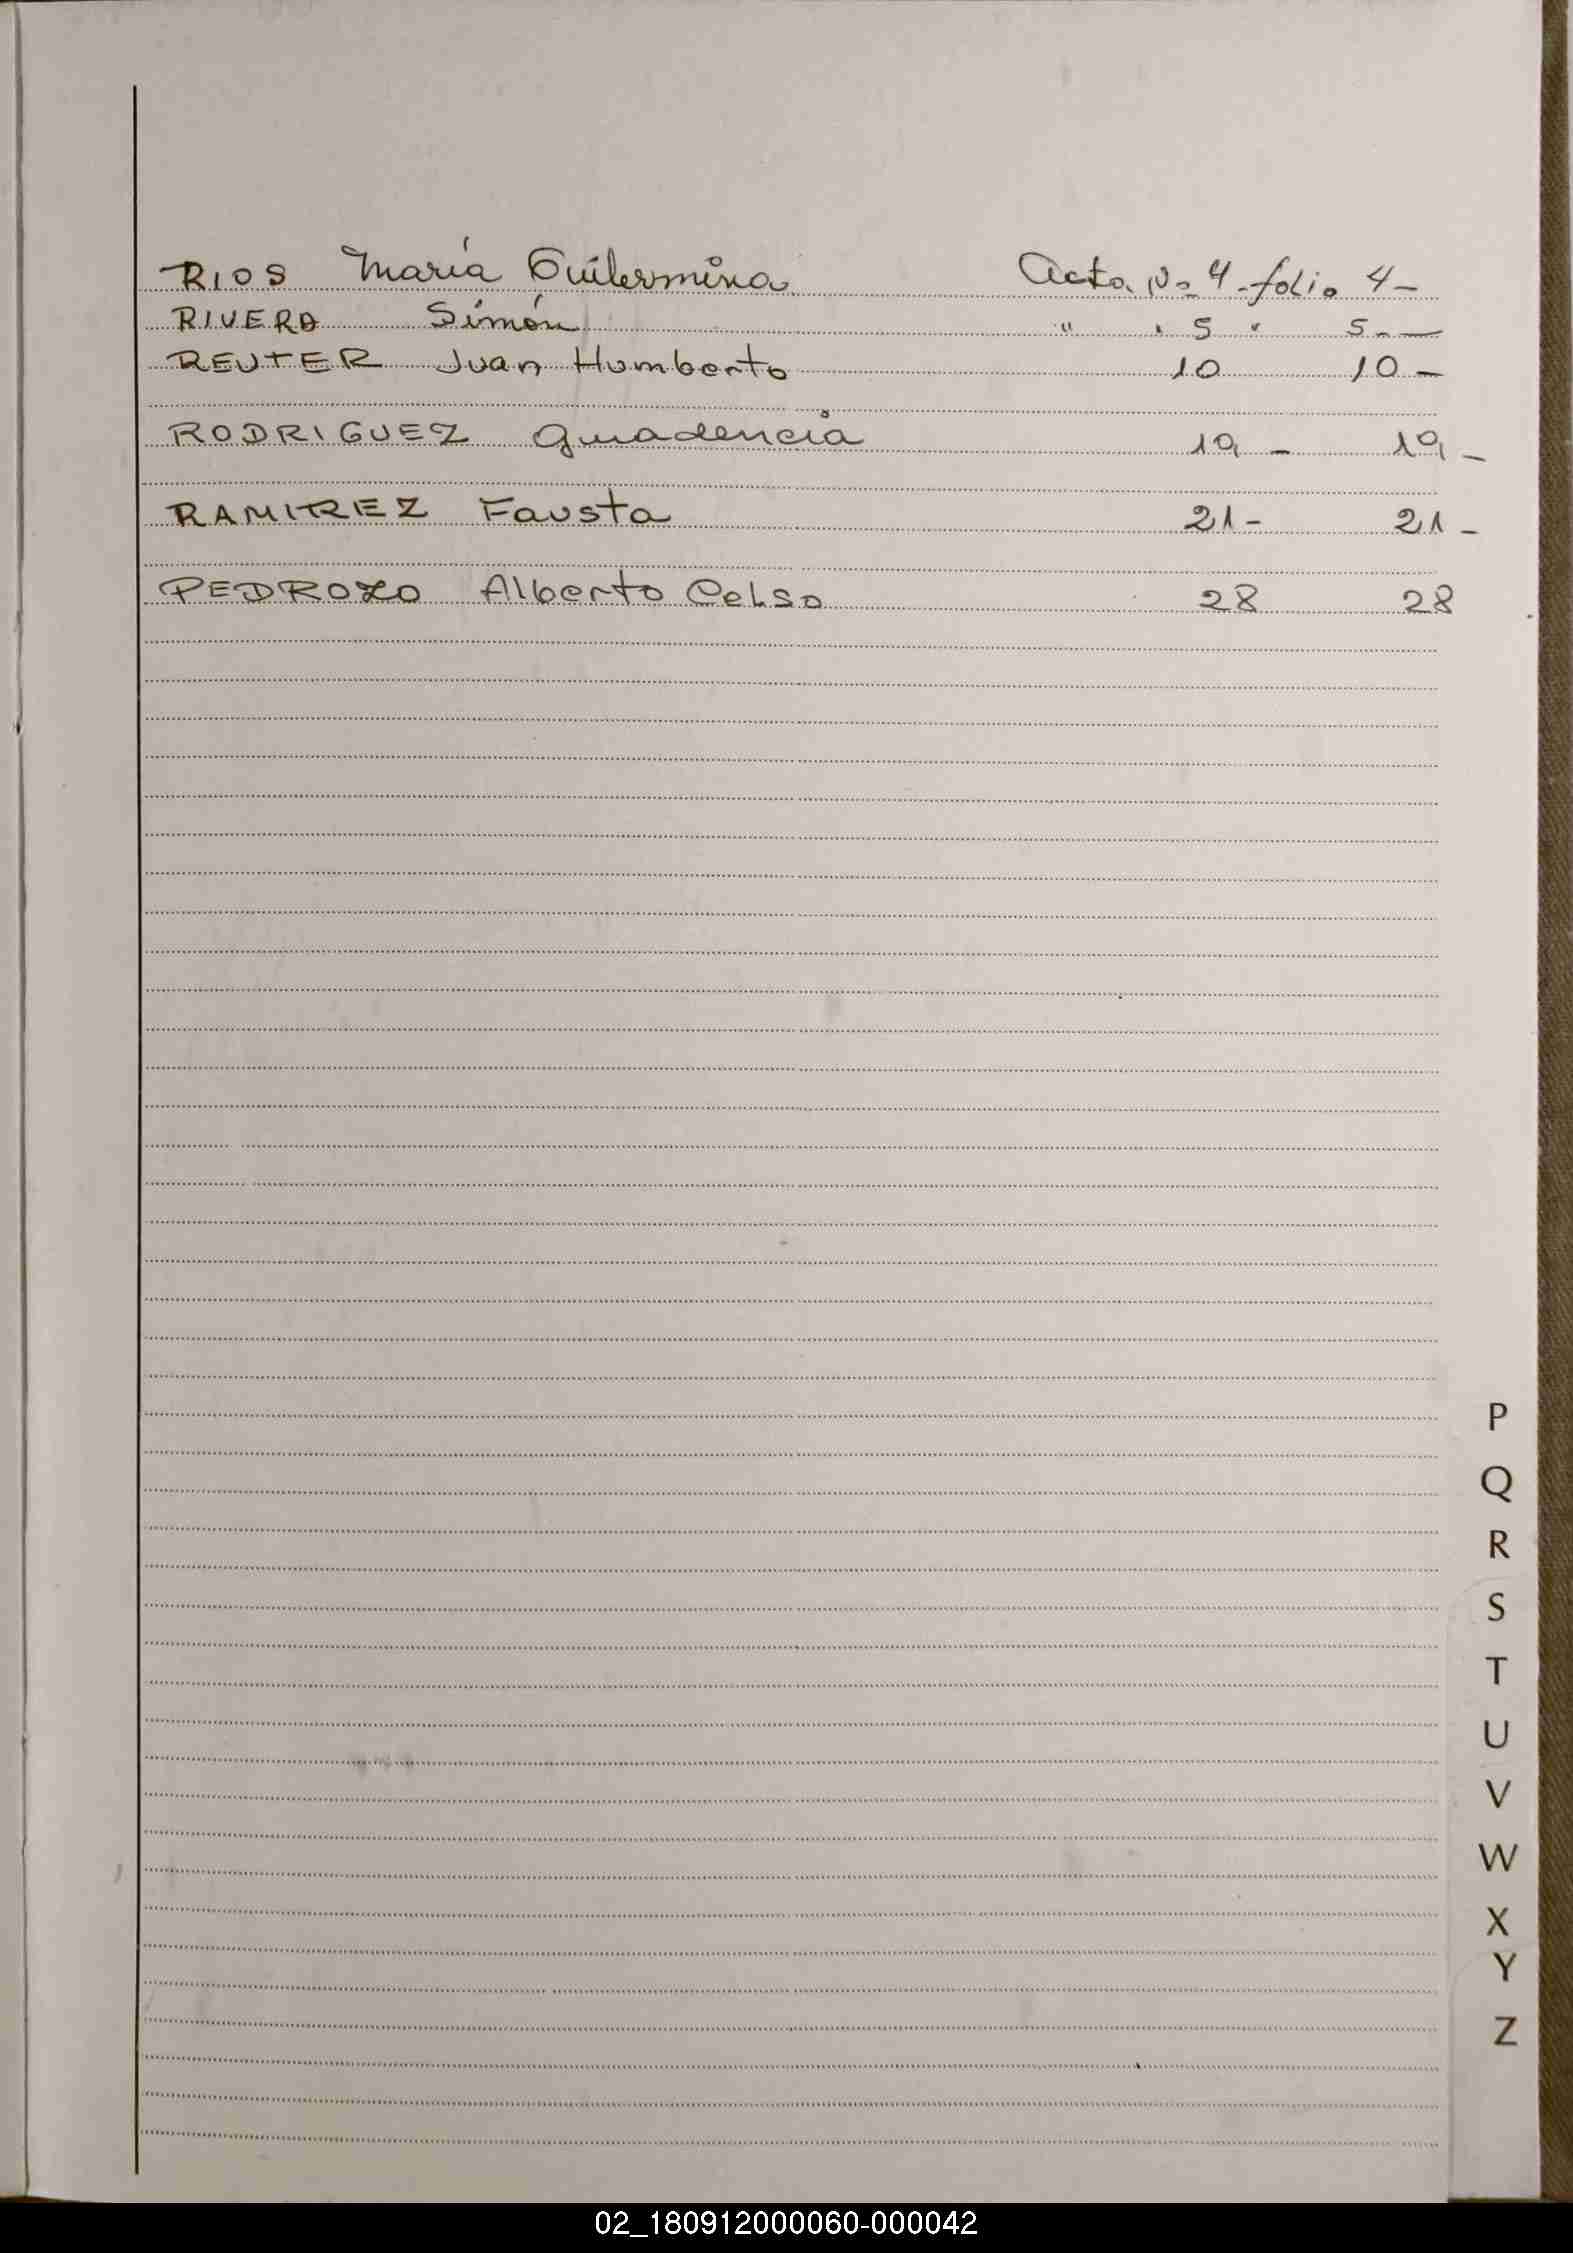 RIOS María Guilermina Acta No 4 - folio 4 -
RIVERA Simón " " 5 " 5 - —
REUTER Juan Humberto 10 10 -
RODRIGUEZ 19 - 19 -
RAMIREZ Fausta 21 - 21 -
PEDROZO Alberto Celso 28 28
P
Q
R
S
T
U
V
W
X
Y
Z
02_180912000060-000042